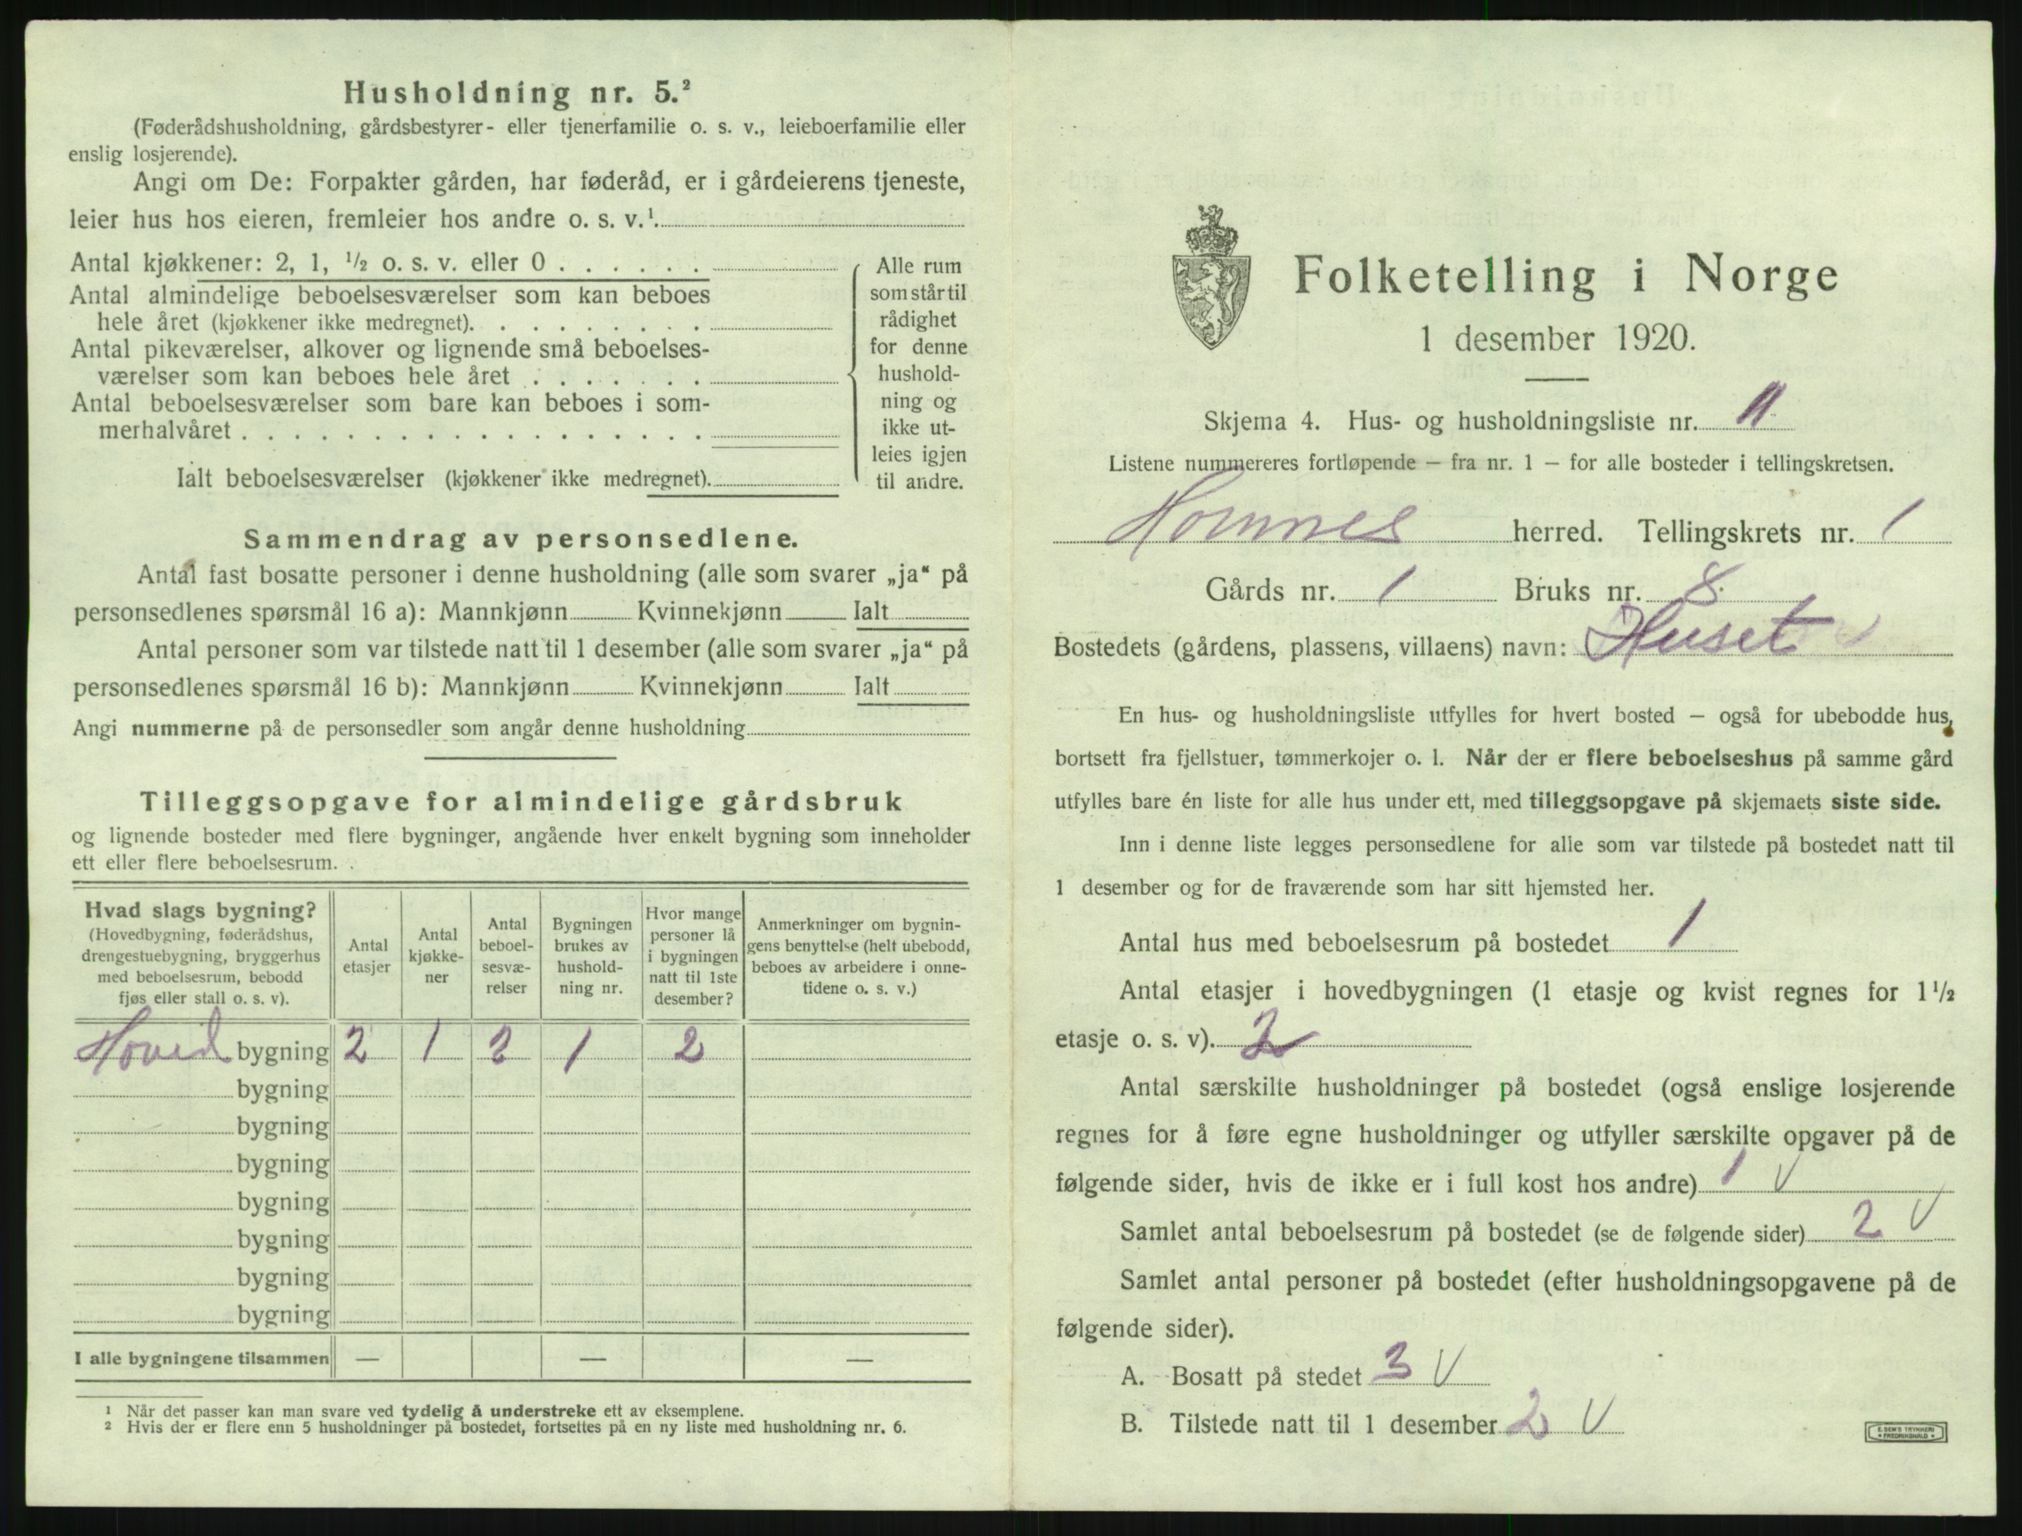 Husholdning nr. 5.²
(Føderådshusholdning, gårdsbestyrer- eller tjenerfamilie o. s. v., leieboerfamilie eller
enslig losjerende).
Angi om De: Forpakter gården, har føderåd, er i gårdeierens tjeneste,
leier hus hos eieren, fremleier hos andre o. s. v.¹
Antal kjøkkener: 2, 1, ½ o. s. v. eller 0 . . . . . .
Antal almindelige beboelsesværelser som kan beboes
hele året (kjøkkener ikke medregnet). . . . . . . . .
Antal pikeværelser, alkover og lignende små beboelses-
værelser som kan beboes hele året . . . . . . .
Antal beboelsesværelser som bare kan beboes i som-
merhalvåret . . . . . . . . . . . . . . . . . .
Ialt beboelsesværelser (kjøkkener ikke medregnet).
Alle rum
som står til
rådighet
for denne
hushold-
ning og
ikke ut-
leies igjen
til andre.
Sammendrag av personsedlene.
Antal fast bosatte personer i denne husholdning (alle som svarer „ja“ på
personsedlenes spørsmål 16 a): Mannkjønn Kvinnekjønn Ialt
Antal personer som var tilstede natt til 1 desember (alle som svarer „ja“ på
personsedlenes spørsmål 16 b): Mannkjønn Kvinnekjønn Ialt
Angi nummerne på de personsedler som angår denne husholdning
Tilleggsopgave for almindelige gårdsbruk
og lignende bosteder med flere bygninger, angående hver enkelt bygning som inneholder
ett eller flere beboelsesrum.
Hvad slags bygning?
(Hovedbygning, føderådshus,
drengestuebygning, bryggerhus
med beboelsesrum, bebodd
fjøs eller stall o. s. v).
Antal
etasjer
Antal
kjøkke-
ner
Antal
beboel-
sesvæ-
relser
Bygningen
brukes av
hushold-
ning nr.
Hvor mange
personer lå
i bygningen
natt til 1ste
desember?
Anmerkninger om bygnin-
gens benyttelse (helt ubebodd,
beboes av arbeidere i onne-
tidene o. s. v.)
Hoved bygning 2 1 2 1 2
bygning
bygning
bygning
bygning
bygning
bygning
bygning
I alle bygningene tilsammen — — —
¹ Når det passer kan man svare ved tydelig å understreke ett av eksemplene.
² Hvis der er flere enn 5 husholdninger på bostedet, fortsettes på en ny liste med husholdning nr. 6.
Folketelling i Norge
1 desember 1920.
Skjema 4. Hus- og husholdningsliste nr. 11
Listene nummereres fortløpende – fra nr. 1 – for alle bosteder i tellingskretsen.
Hommes herred. Tellingskrets nr. 1
Gårds nr. 1 Bruks nr. 8.
Bostedets (gårdens, plassens, villaens) navn: Huset V
En hus- og husholdningsliste utfylles for hvert bosted – også for ubebodde hus,
bortsett fra fjellstuer, tømmerkojer o. l. Når der er flere beboelseshus på samme gård
utfylles bare én liste for alle hus under ett, med tilleggsopgave på skjemaets siste side.
Inn i denne liste legges personsedlene for alle som var tilstede på bostedet natt til
1 desember og for de fraværende som har sitt hjemsted her.
Antal hus med beboelsesrum på bostedet 1
Antal etasjer i hovedbygningen (1 etasje og kvist regnes for 1½
etasje o. s. v). 2
Antal særskilte husholdninger på bostedet (også enslige losjerende
regnes for å føre egne husholdninger og utfyller særskilte opgaver på de
følgende sider, hvis de ikke er i full kost hos andre) 1 V
Samlet antal beboelsesrum på bostedet (se de følgende sider) 2 V
Samlet antal personer på bostedet (efter husholdningsopgavene på de
følgende sider).
A. Bosatt på stedet 3 V
B. Tilstede natt til 1 desember 2 V
E. SEM'S TRYKKERI
FREDRIKSHALD